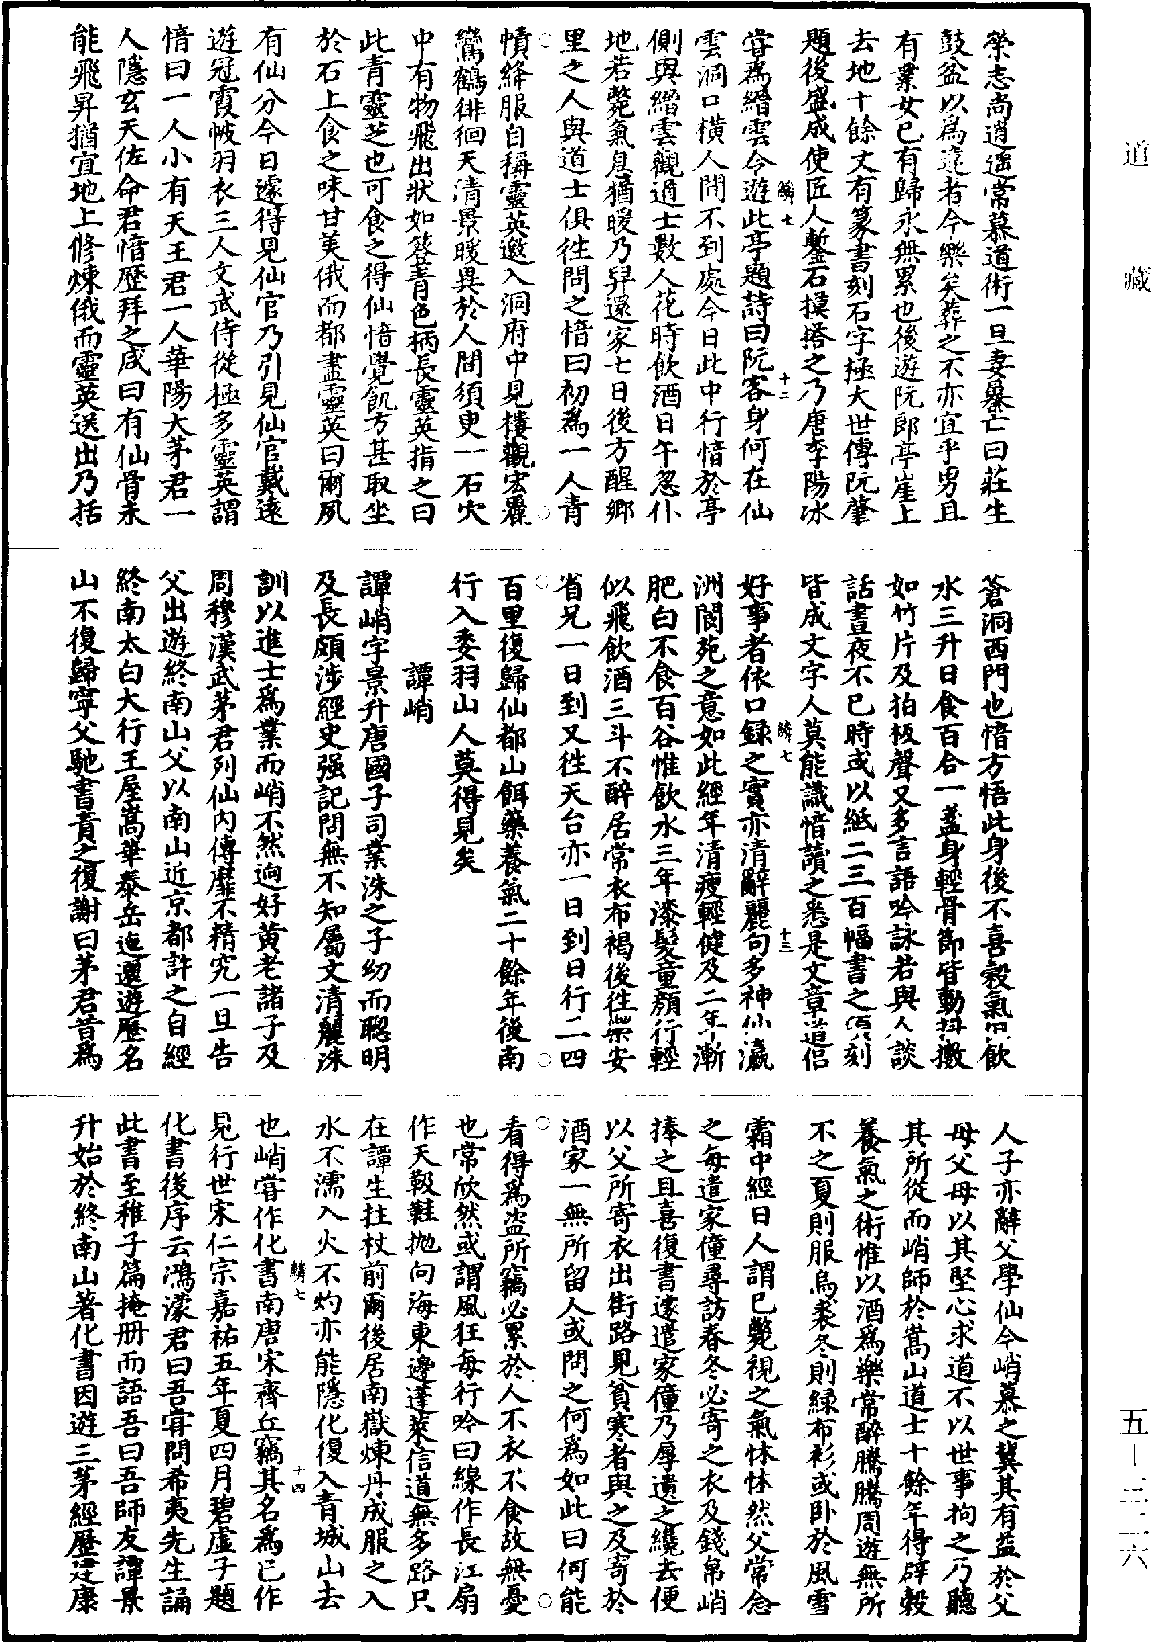 道藏
榮志尚逍遥常慕道術一旦妻暴亡曰莊生
鼓盆以爲達者今樂矣葬之不亦宜乎男且
有業女已有歸永無累也後遊阮郎亭崖上
去地十餘丈有篆書刻石字極大世傳阮肇
題後盛成使匠人鏨石摸搭之乃唐李陽冰
嘗爲縉雲令遊此亭題詩曰阮客身何在仙
雲洞口橫人間不到處今日此中行愔於亭
側與縉雲觀道士數人花時飲酒日午忽仆
地若斃氣息猶暖乃舁還家七日後方醒鄉
里之人與道士俱徃問之愔曰初爲一人青
幘絳服自稱靈英邀入洞府中見樓觀宏麗
鸞鶴徘徊天清景暖異於人間須臾一石穴
中有物飛出狀如笭青色柄長靈英指之曰
此青靈芝也可食之得仙愔覺飢方甚取坐
於石上食之味甘美俄而都盡靈英曰爾夙
有仙分今日遽得見仙官乃引見仙官戴遠
遊冠霞帔羽衣三人文武侍從極多靈英謂
愔曰一人小有天王君一人華陽大茅君一
人隱玄天佐命君愔歷拜之咸曰有仙骨未
能飛昇猶宜地上修煉俄而靈英送出乃括
蒼洞西門也愔方悟此身後不喜穀氣但飲
水三升日食百合一盞身輕骨節皆動抖擻
如竹片及拍板聲又多言語吟詠若與人談
話晝夜不已時或以紙二三百幅書之頃刻
皆成文字人莫能識愔讀之悉是文章道侣
好事者依口録之實亦清辭麗句多神仙瀛
洲閬苑之意如此經年清瘦輕健及二年漸
肥白不食百谷惟飲水三年漆髮童顔行輕
似飛飲酒三斗不醉居常衣布褐後徃樂安
省兄一日到又徃天台亦一日到日行二四
百里復歸仙都山餌藥養氣二十餘年後南
行入委羽山人莫得見矣
譚峭
譚峭字景升唐國子司業洙之子幼而聰明
及長頗涉經史强記問無不知屬文清麗洙
訓以進士爲業而峭不然迥好黄老諸子及
周穆漢武茅君列仙内傳靡不精究一旦告
父出遊終南山父以南山近京都許之自經
終南太白大行王屋嵩華泰岳迤邐遊歷名
山不復歸寧父馳書責之復謝曰茅君昔爲
人子亦辭父學仙今峭慕之冀其有益於父
母父母以其堅心求道不以世事拘之乃聽
其所從而峭師於嵩山道士十餘年得辟穀
養氣之術惟以酒爲樂常醉騰騰周遊無所
不之夏則服烏裘冬則緑布衫或卧於風雪
霜中經日人謂已斃視之氣怵怵然父常念
之每遣家僮尋訪春冬必寄之衣及錢帛峭
捧之且喜復書遽遣家僮乃厚遺之纔去便
以父所寄衣出街路見貧寒者與之及寄於
酒家一無所留人或問之何爲如此曰何能
看得爲盗所竊必累於人不衣不食故無憂
也常欣然或謂風狂每行吟曰線作長江扇
作天靸鞋抛向海東邊蓬萊信道無多路只
在譚生拄杖前爾後居南嶽煉丹成服之入
水不濡入火不灼亦能隱化復入青城山去
也峭嘗作化書南唐宋齊丘竊其名爲已作
見行世宋仁宗嘉祐五年夏四月碧虚子題
化書後序云鴻濛君曰吾嘗問希夷先生誦
此書至稚子篇掩册而語吾曰吾師友譚景
升始於終南山著化書因遊三茅經歷建康
鱗七
十二
鱗七
十三
鱗七
十四
五—三二六